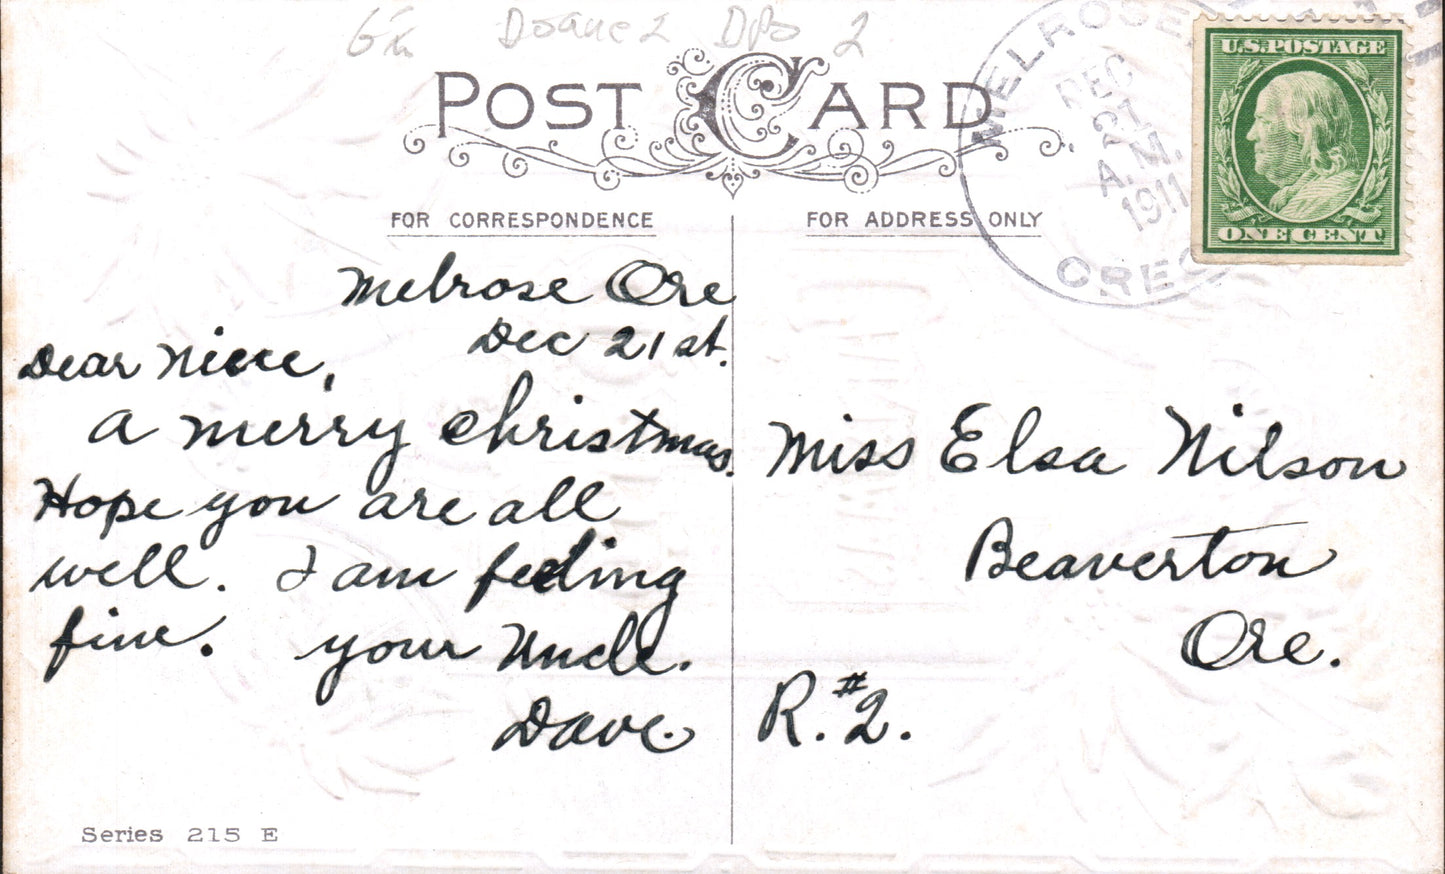 Doane 2 DPO 2
POST CARD
MELROSE,
DEC
21
A.M.
1911
OREG
U.S. POSTAGE
ONE CENT
FOR CORRESPONDENCE
FOR ADDRESS ONLY
Melrose Ore
Dec 21st.
Dear Niece,
A merry Christmas.
Hope you are all
well. I am feeling
fine. your Uncle.
Dave.
Miss Elsa Nilson
Beaverton
Ore.
R. #2.
Series 215 E